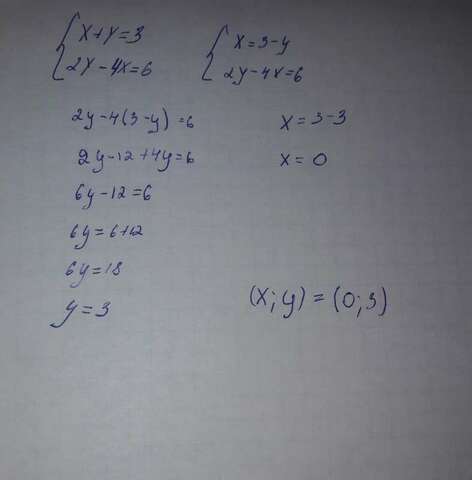 x+y=3
2y-4x=6
x=3-y
2y-4x=6
2y-4(3-y)=6
2y-12+4y=6
6y-12=6
6y=6+12
6y=18
y=3
x=3-3
x=0
(x;y)=(0;3)